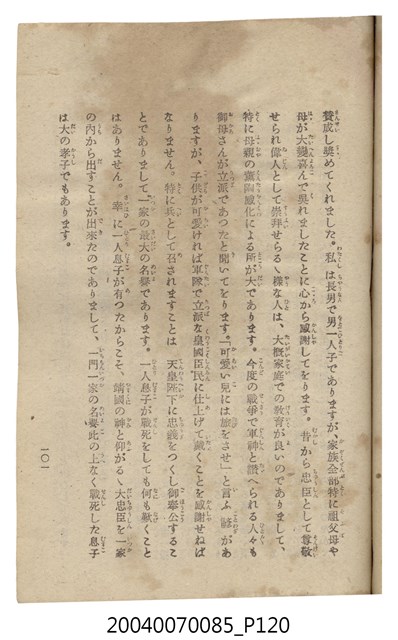 賛成し奬めてくれました。私は長男で男一人子でありますが、家族全部特に祖父母や
母が大變喜んで呉れましたことに心から感謝してをります。昔から忠臣として尊敬
せられ偉人として崇拜せらるゝ樣な人は、大概家庭での敎育が良いのでありまして、
特に母親の薰陶感化による所が大であります。今度の戰爭で軍神と讃へられる人々も
御母さんが立派であつたと聞いてをります。「可愛い兒には旅をさせ」と言ふ諺があ
りますが、子供が可愛ければ軍隊で立派な皇國臣民に仕上げて戴くことを感謝せねば
なりません。特に兵として召されますことは 天皇陛下に忠義をつくし御奉公するこ
とでありまして一家の最大の名譽であります。一人息子が戰死をしても何も歎くこと
はありません。幸に一人息子が有つたからこそ、靖國の神と仰がるゝ大忠臣を一家
の內から出すことが出來たのでありまして、一門一家の名譽此の上なく戰死した息子
は大の孝子でもあります。
一〇一
20040070085_P120